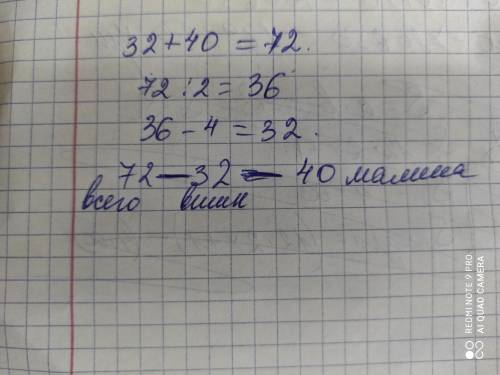 32+40 = 72.
72 : 2 = 36
36 - 4 = 32.
72 — 32 = 40 малина
всего вишн
REDMI NOTE 9 PRO
AI QUAD CAMERA